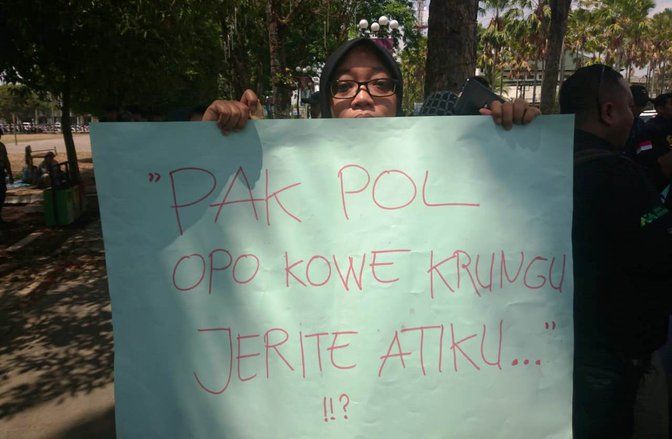 "PAK POL
OPO KOWE KRUNGU
JERITE ATIKU..."
!!?